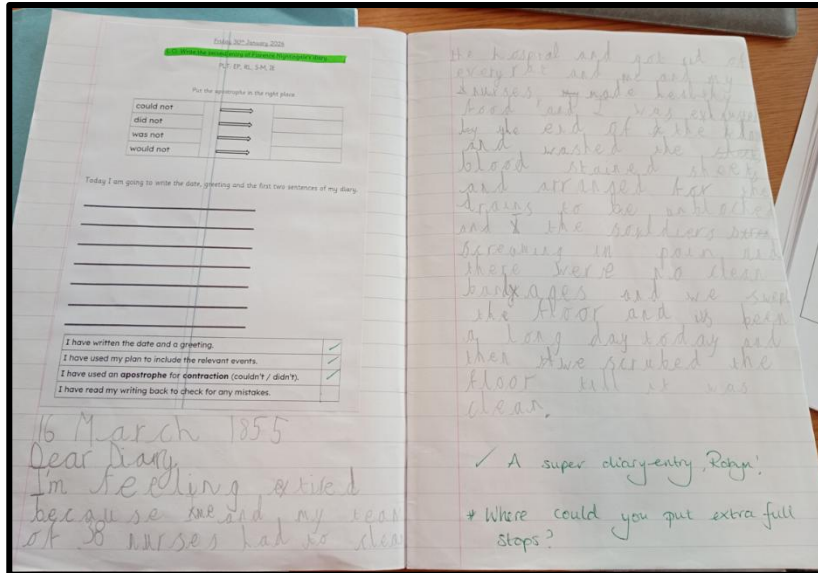 Friday 30th January 2026
L.O. Write the introduction of Florence Nightingale's diary.
PLT: EP, RL, SM, IE
Put the apostrophe in the right place
could not
did not
was not
would not
Today I am going to write the date, greeting and the first two sentences of my diary.
I have written the date and a greeting.
I have used my plan to include the relevant events.
I have used an apostrophe for contraction (couldn't / didn't).
I have read my writing back to check for any mistakes.
16 March 1855
Dear Diary
I'm feeling tired
because me and my team
of 38 nurses had to clean
the hospial and got rid of
every and me and my
nurses made healthy
food and I was
by the end of the day
and washed the
blood stained sheets
and arranged for the
drains to be unblocked
and the souldiers
screaming in pain and
there werse no clean
bandages and we swep
the floor and its been
a long day today and
then we scrubed the
floor till it was
clean.
✓ A super diary-entry, Robyn!
* Where could you put extra full
stops?